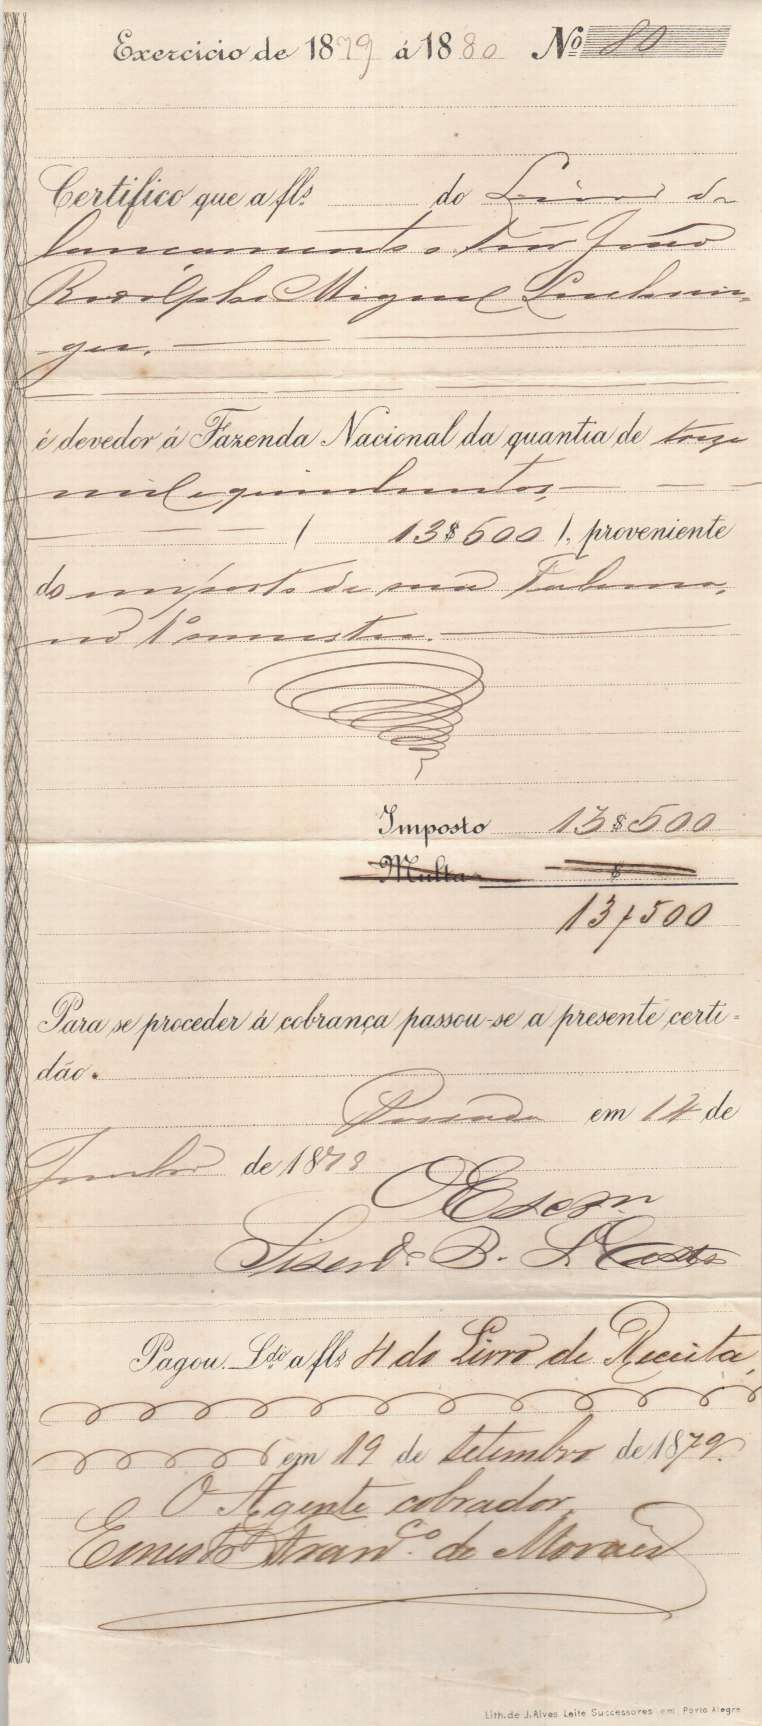 Exercicio de 1879 á 1880 Nº 80
Certifico que a fls do Livro de
lançamento o Snr João
Rodolpho Miguel
ger.
é devedor á Fazenda Nacional da quantia de treze
mil e quinhentos,
( 13$500 ), proveniente
do imposto de sua Taberna,
no 1º semestre.
Imposto 13$500
Multa $
13$500
Para se proceder á cobrança passou-se a presente certi-
dão.
em 14 de
Junho de 1879
O Escr.m
B. Castro
Pagou. Ldo a fls 4 do Livro de Receita,
em 19 de setembro de 1879.
O Agente cobrador,
Ernesto Fran.co de Moraes
Lith. de J. Alves Leite Successores em Porto Alegre